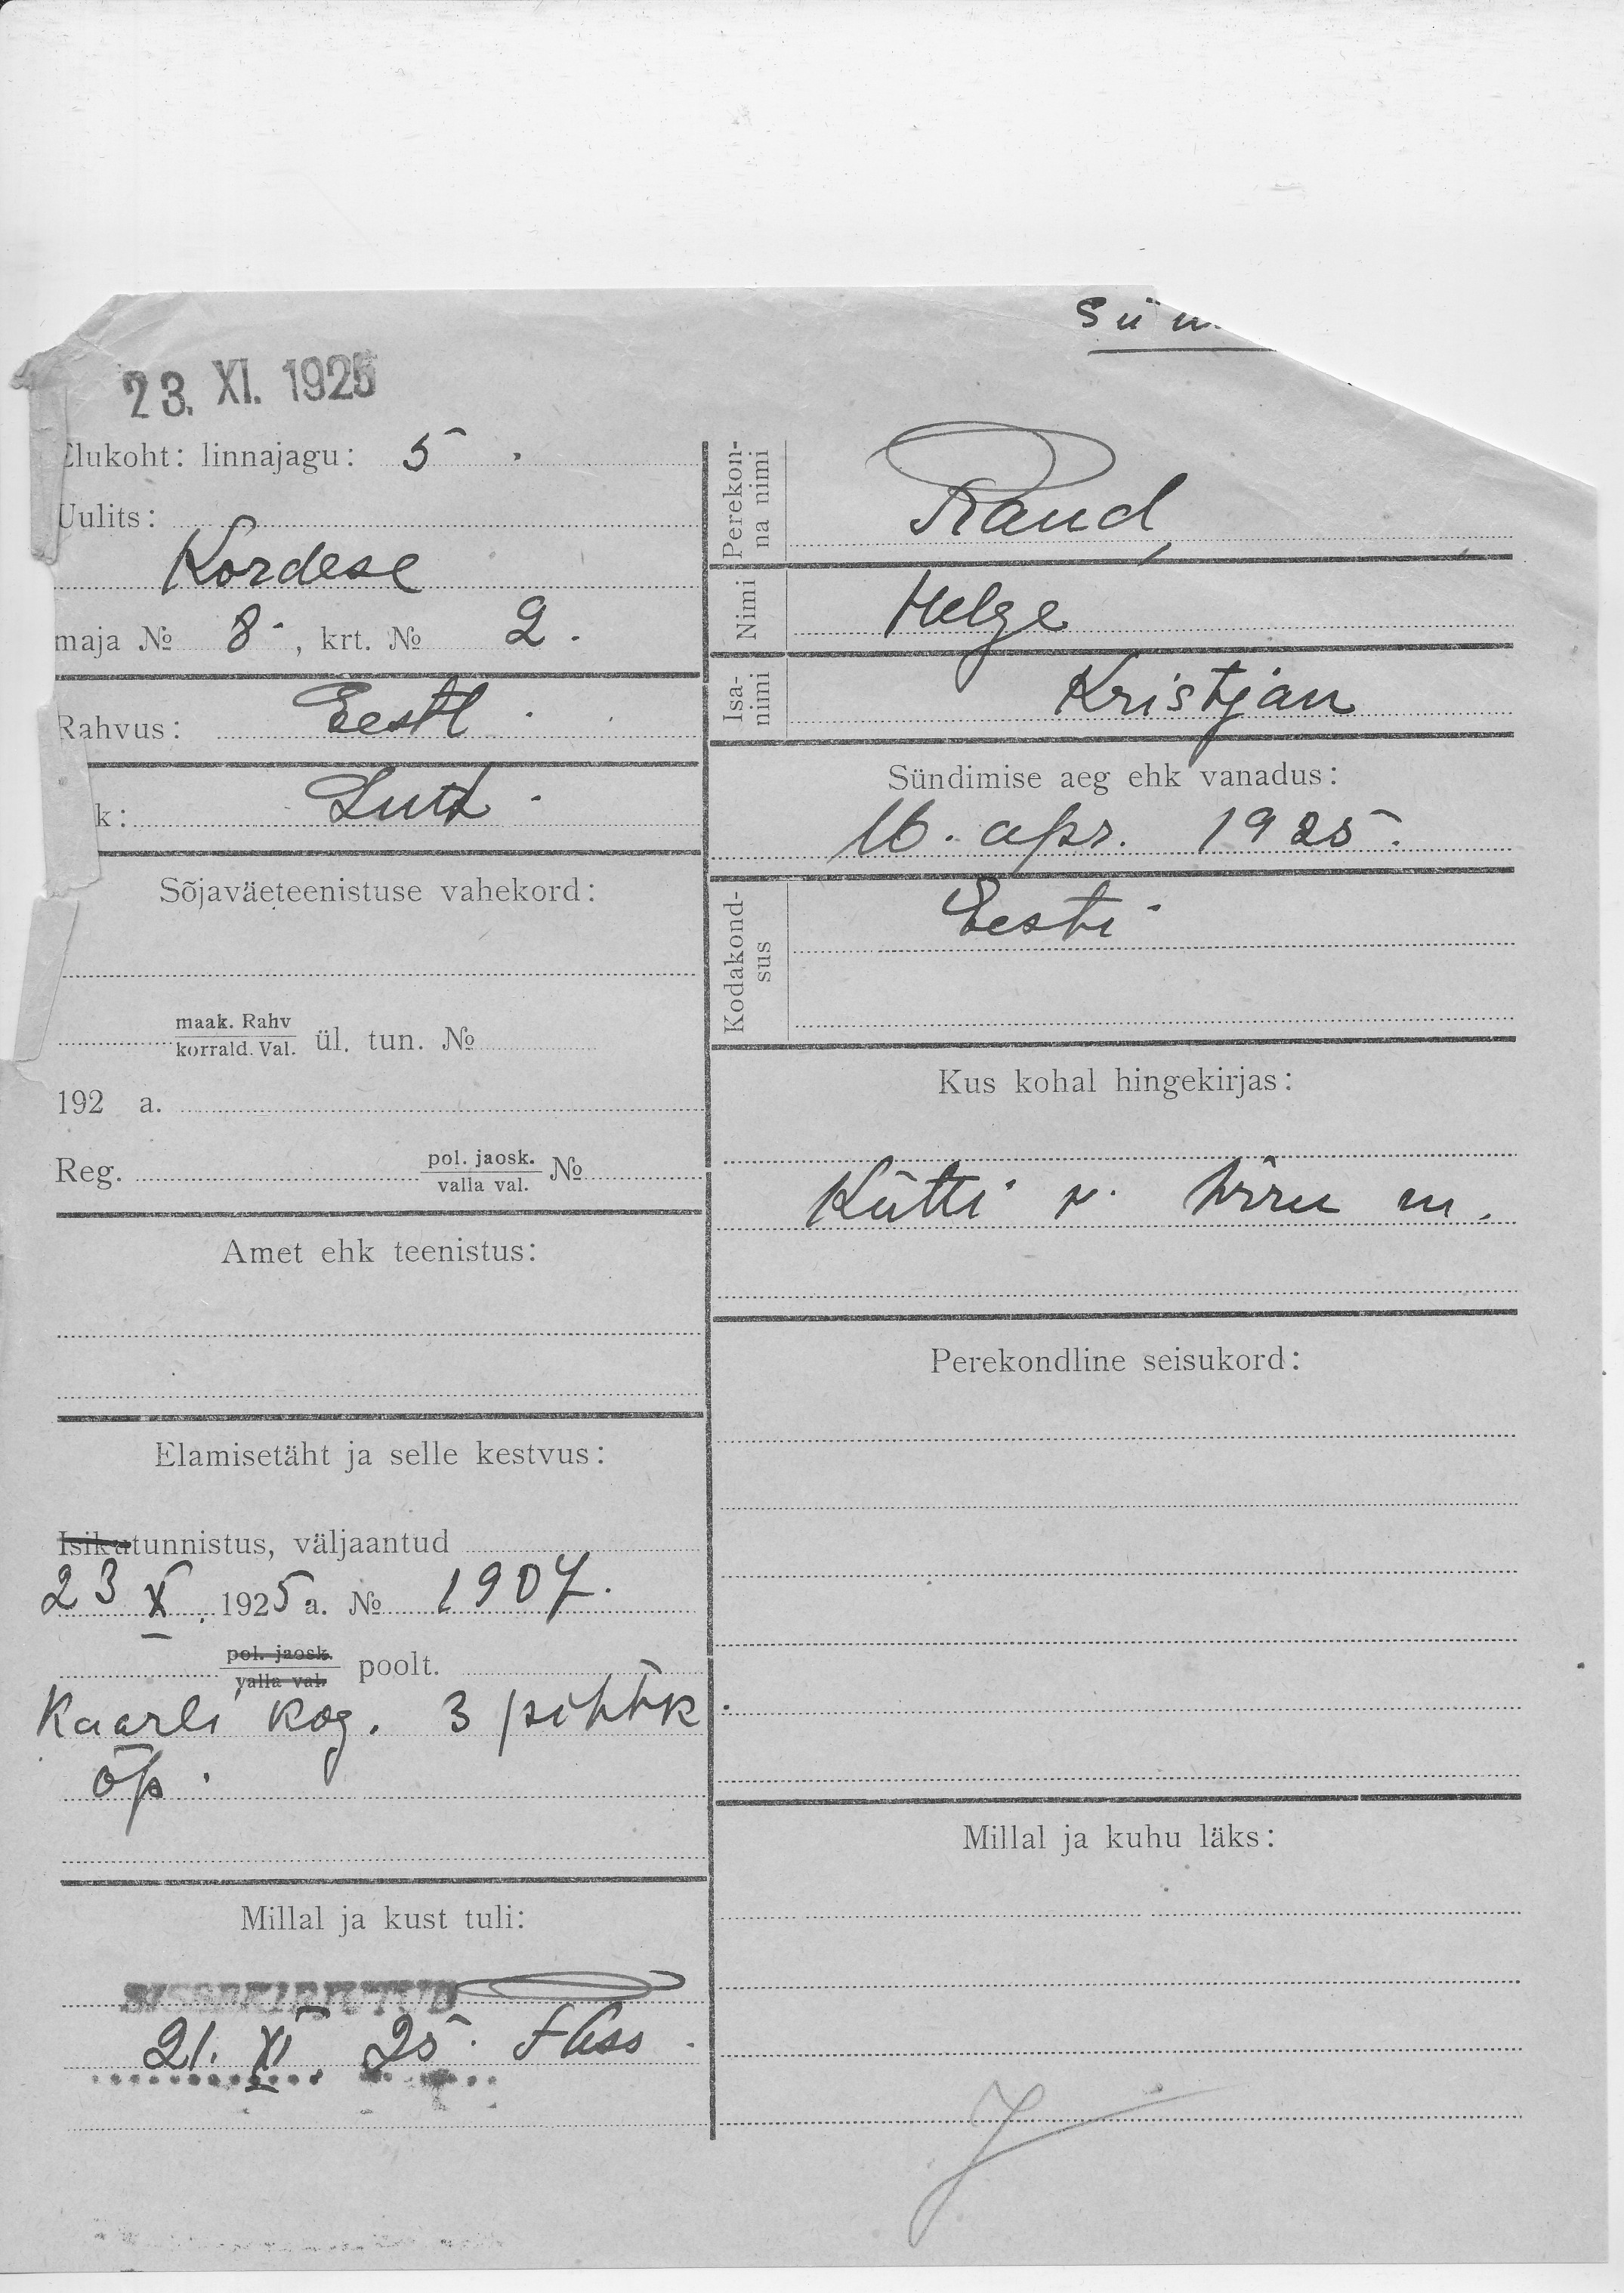 Sü
23. XI. 1925
Elukoht: linnajagu: 5
Uulits:
Kordese
maja № 8, krt. № 2.
Rahvus: Eestl.
k: Luth.
Sõjaväeteenistuse vahekord:
maak. Rahv
korrald. Val. ül. tun. №
192 a.
Reg. pol. jaosk.
valla val. №
Amet ehk teenistus:
Elamisetäht ja selle kestvus:
Isikutunnistus, väljaantud
23 X. 1925 a. № 1907.
pol. jaosk.
valla val. poolt.
Kaarli kog. 3 pihtk.
õp.
Millal ja kust tuli:
SISSEKIRJUTUD
21. XI. 25.
Perekon-
na nimi Raud,
Nimi Helge
Isa-
nimi Kristjan
Sündimise aeg ehk vanadus:
16. apr. 1925.
Kodakond-
sus Eesti
Kus kohal hingekirjas:
Kütti v. Viru m.
Perekondline seisukord:
Millal ja kuhu läks: